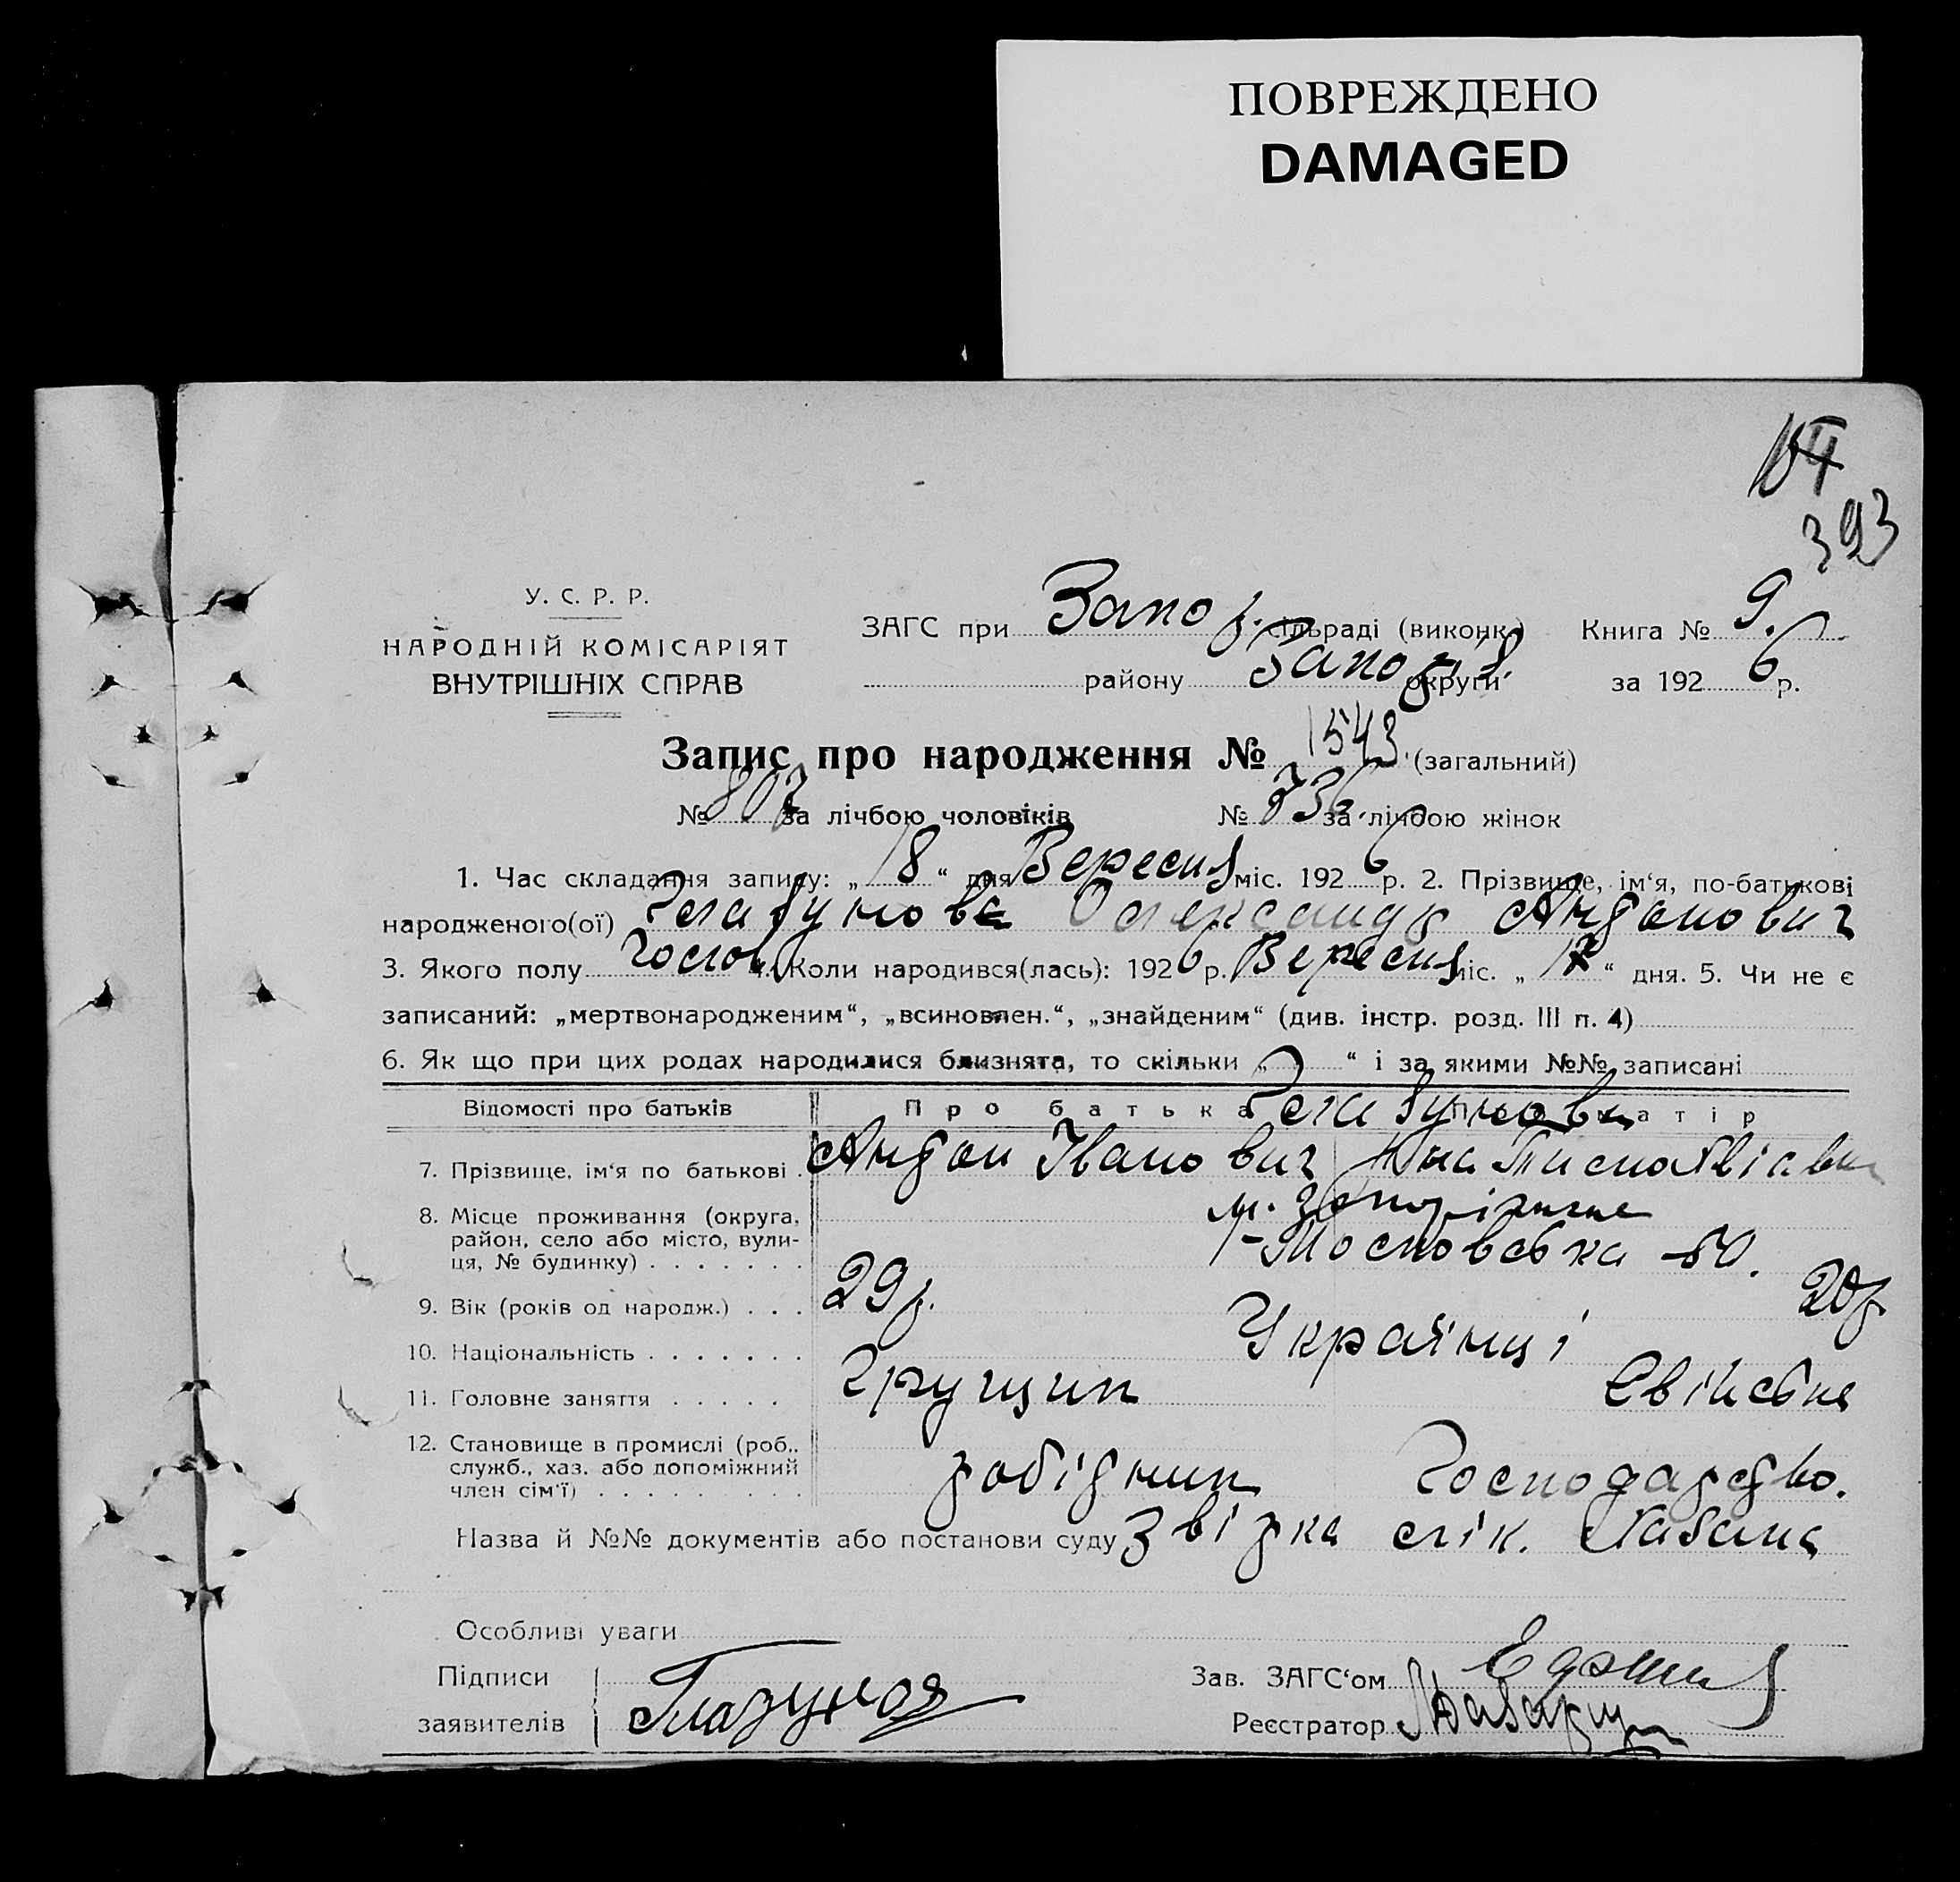 ПОВРЕЖДЕНО
DAMAGED
393
У. С. Р. Р.
НАРОДНІЙ КОМІСАРІЯТ
ВНУТРІШНІХ СПРАВ
ЗАГС при Запор. сільраді (виконк.) Книга № 9.
району Запоріз. округи за 1926 р.
Запис про народження № 1543. (загальний)
№ 807 за лічбою чоловіків № 736. за лічбою жінок
1. Час складання запису: „18“ дня Вересня міс. 1926 р. 2. Прізвище, ім‘я, по-батькові
народженого(ої) Олександр Антонович
3. Якого полу чолов. 4. Коли народився(лась): 1926 р. Вересня міс. „17“ дня. 5. Чи не є
записаний: „мертвонародженим“, „всиновлен.“, „знайденим“ (див. інстр. розд. III п. 4)
6. Як що при цих родах народилися близнята, то скільки „ “ і за якими №№ записані
Відомості про батьків Про батька Про матір
7. Прізвище, ім‘я по батькові . Антон Іванович
8. Місце проживання (округа, м. Запоріжжє
район, село або місто, вули-
ця, № будинку) . . . . . . . Московська
9. Вік (років од народж.) . . . 29 р. 20 р
10. Національність . . . . . . . Українці
11. Головне заняття . . . . . Грущик Свійське
12. Становище в промислі (роб.,
служб., хаз. або допоміжний
член сім‘ї) . . . . . . . . . робітник Господарство.
Назва й №№ документів або постанови суду Звірка лік.
Особливі уваги
Підписи
заявителів
Зав. ЗАГС‘ом
Реєстратор